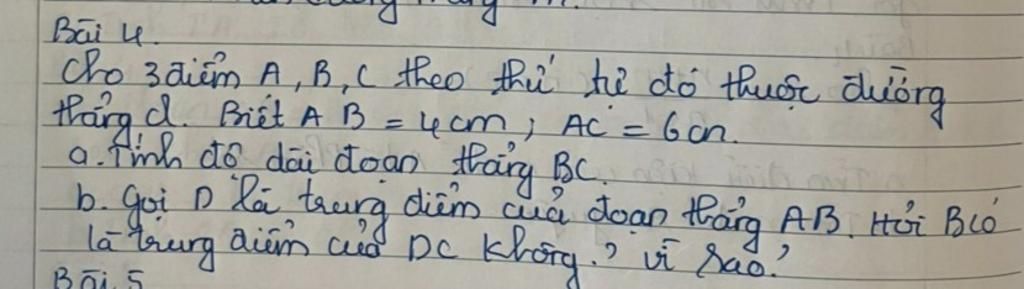 Bài 4.
Cho 3 điểm A, B, C theo thứ tự đó thuộc đường
thẳng d. Biết AB = 4cm; AC = 6cm.
a. Tính độ dài đoạn thẳng BC.
b. Gọi D là trung điểm của đoạn thẳng AB. Hỏi B có
là trung điểm của DC không? vì sao?
Bài 5